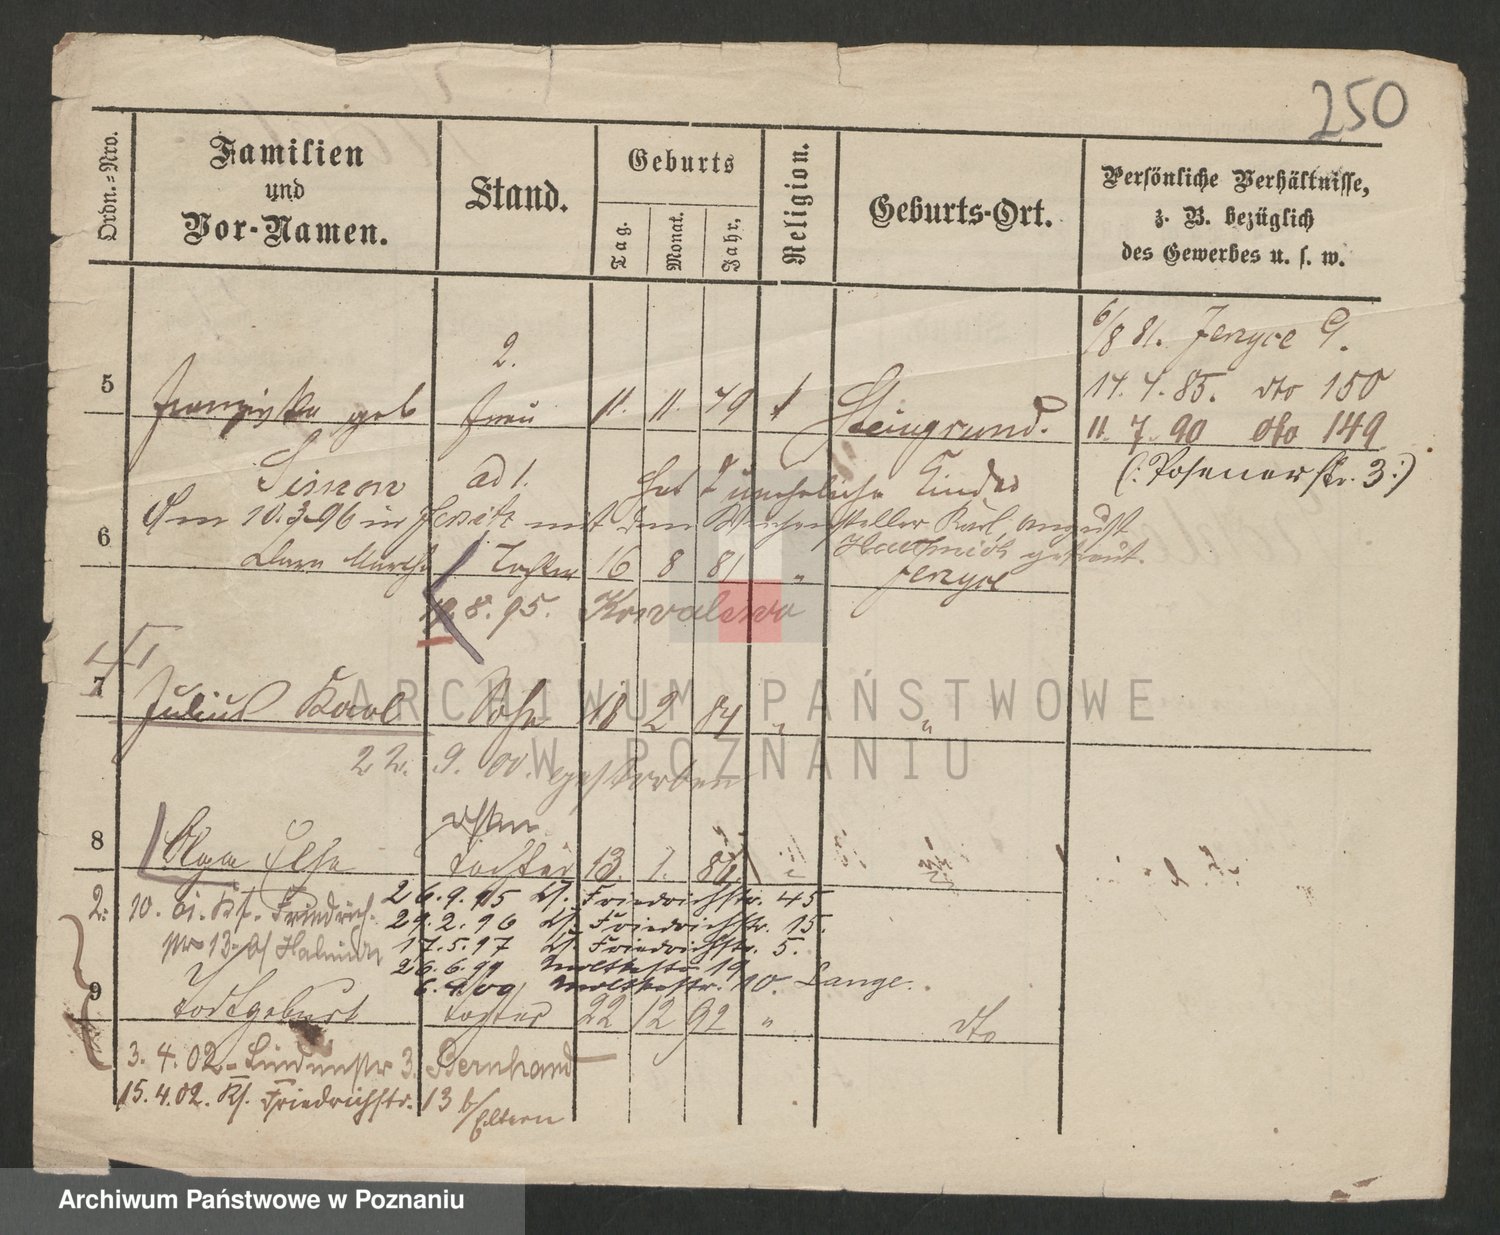 250
Ordn.-Nro.
Familien
und
Vor-Namen.
Stand.
Geburts
Tag.
Monat.
Jahr.
Religion.
Geburts-Ort.
Persönliche Verhältnisse,
z. B. bezüglich
des Gewerbes u. s. w.
6/8 81. Jerzyce 9.
2.
14. 4. 85. dto 150
5 Franziska geb Frau 11. 11. 49 Steingrund.
11. 7. 90 dto 149
(: Posenerstr. 3 :)
Simon ad 1. hat 2 uneheliche Kinder
Am 10.3.96 in Jersitz mit dem Karl August
getraut.
6 Clara Martha Tochter 16 8 81 " Jerzyce
19.8.95. Kowalewo
7 Julius Karl Sohn 18 2 84 " "
22. 9. 00. gestorben
8 Olga Else Tochter 13. 1. 86
2. 10. 01. Kf. Friedrich-
26.9.95 Kf. Friedrichstr. 45
29.2.96 Kf. Friedrichstr. 15.
17.5.97 Kf. Friedrichstr. 5.
26.6.99 Moltkestr 19
Moltkestr. 10. Lange.
9 Todtgeburt Tochter 22 12 92 " dto
3. 4. 02 - Lindenstr 3. Bernhard
15.4.02. Kf. Friedrichstr. 13 b/ Eltern
ARCHIWUM PAŃSTWOWE
W POZNANIU
Archiwum Państwowe w Poznaniu